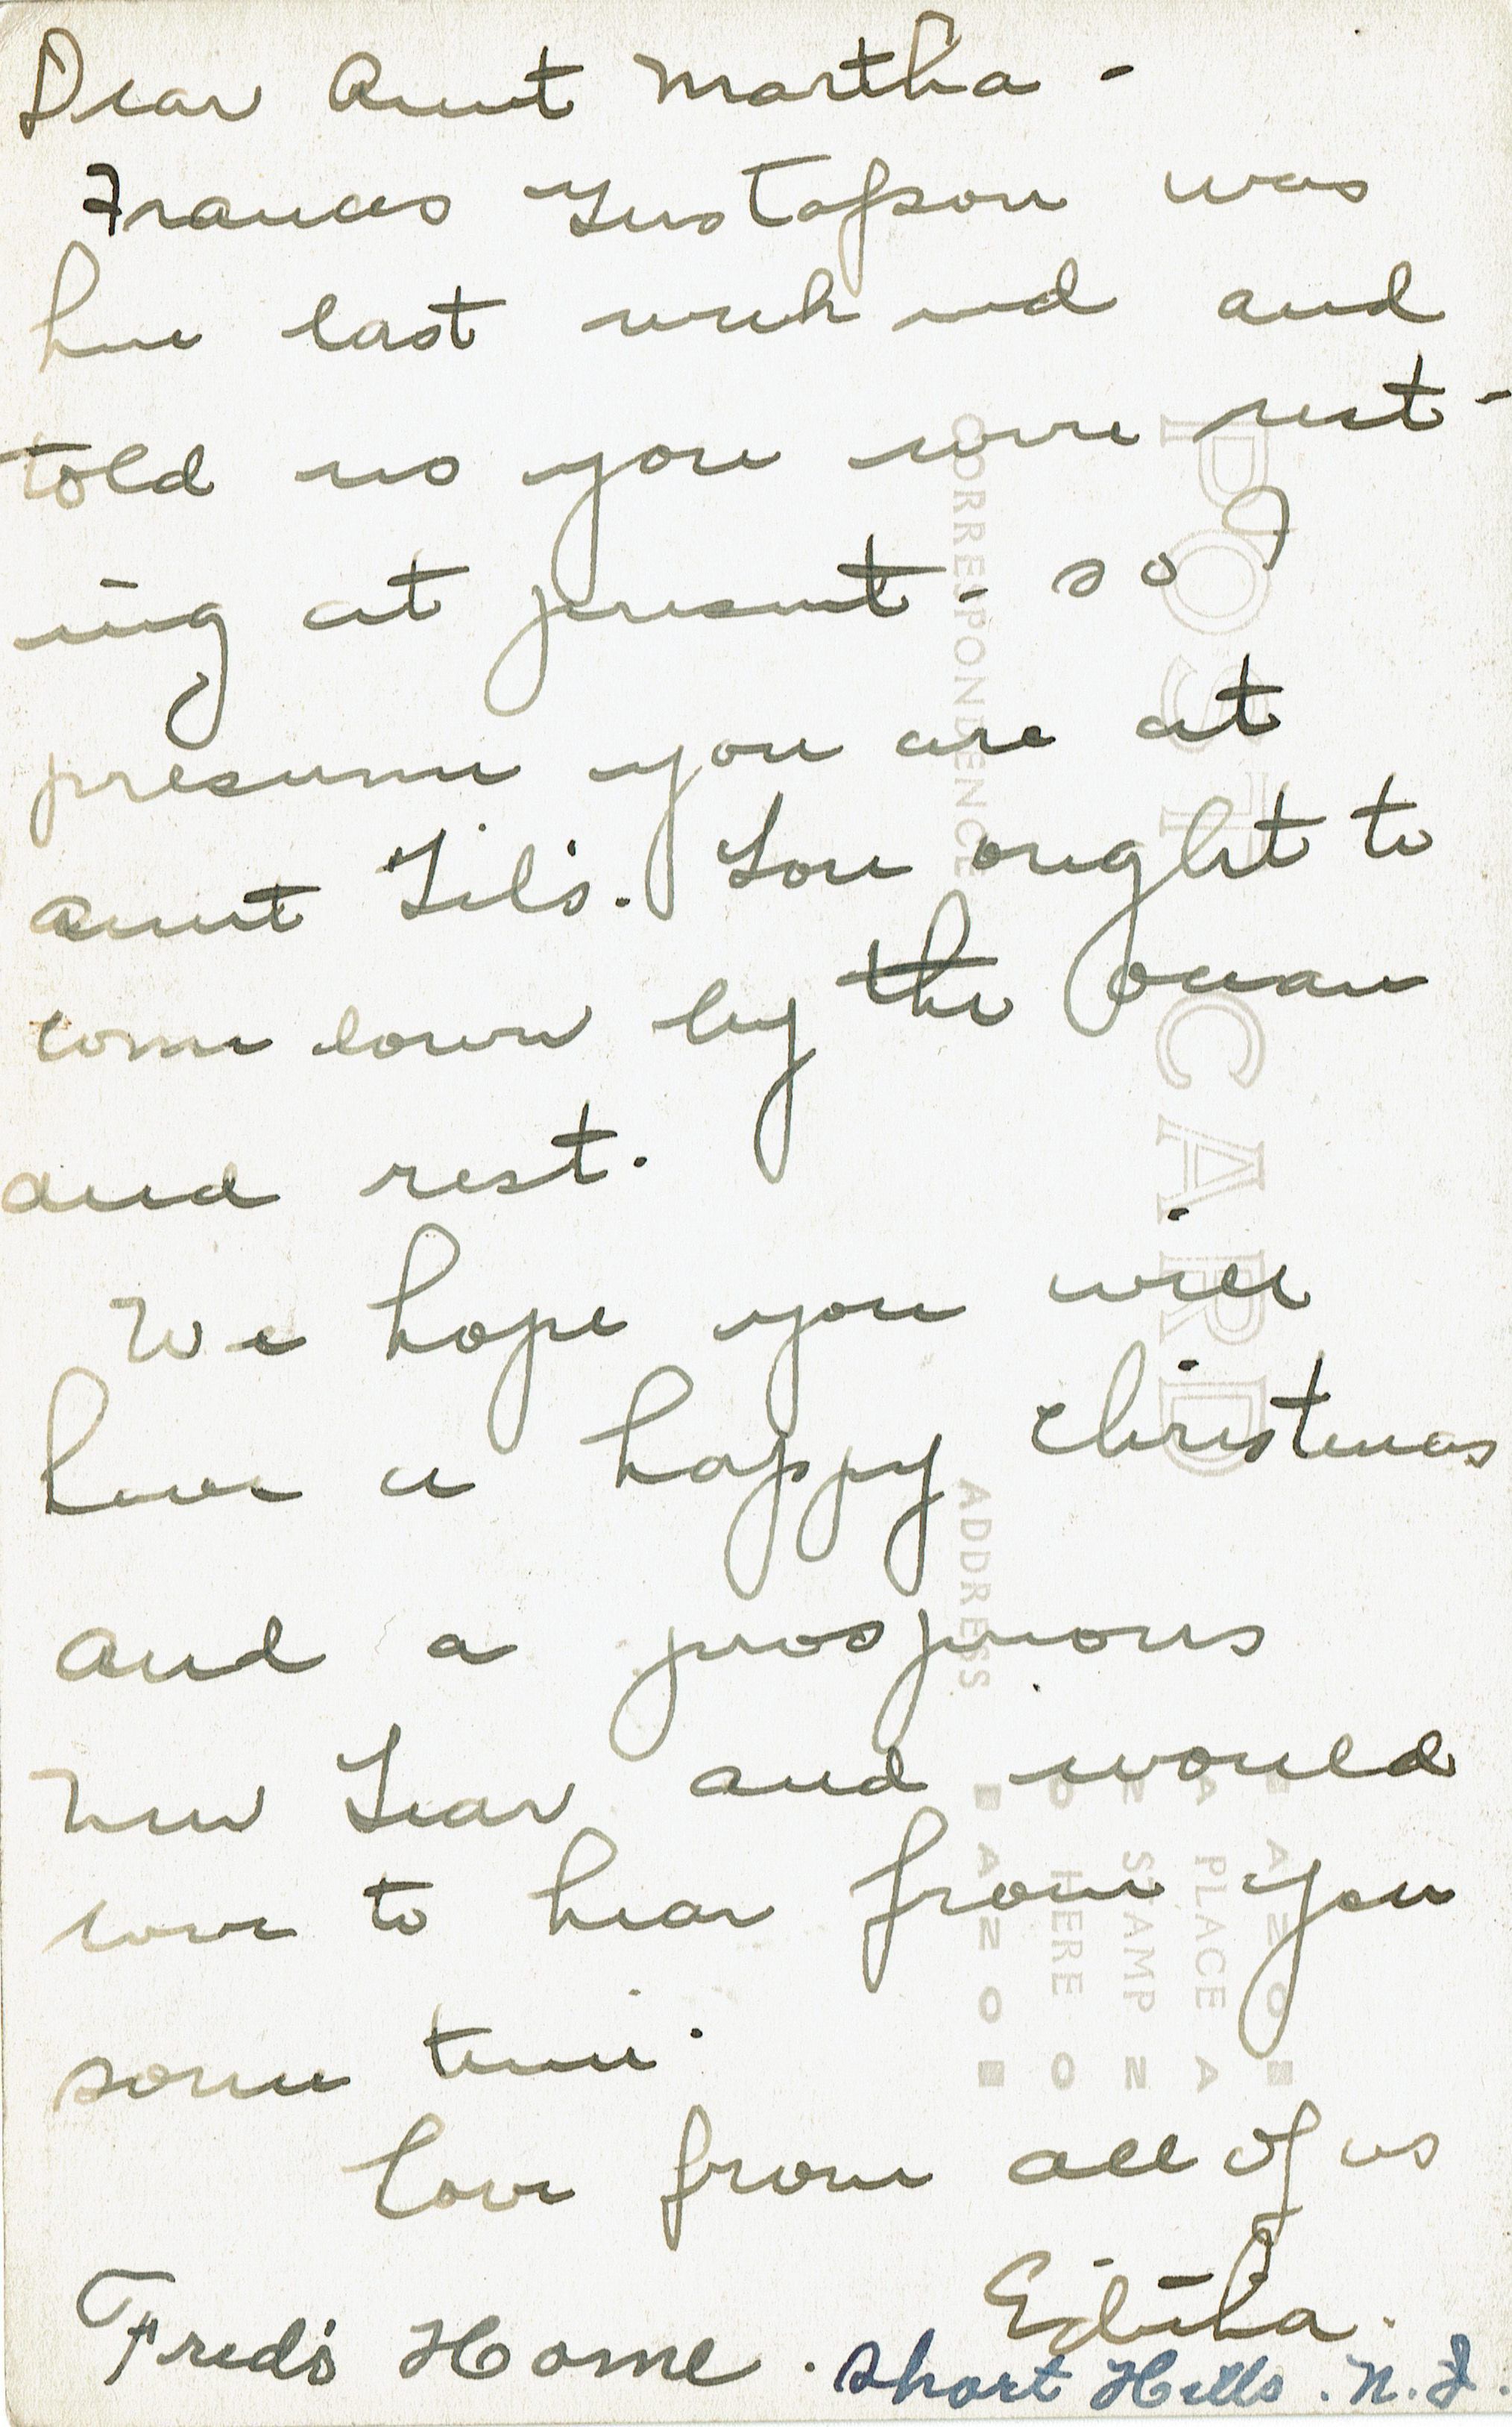 Dear Aunt Martha -
Frances Gustafson was
here last week end and
told us you were rest-
ing at present - so I
presume you are at
Aunt Lil's. You ought to
come down by the ocean
and rest.
We hope you will
have a happy Christmas
and a prosperous
New Year and would
love to hear from you
some time.
Love from all of us
Fred's Home. Short Hills. N.J.
POST CARD
CORRESPONDENCE
ADDRESS
PLACE
STAMP
HERE
AZO